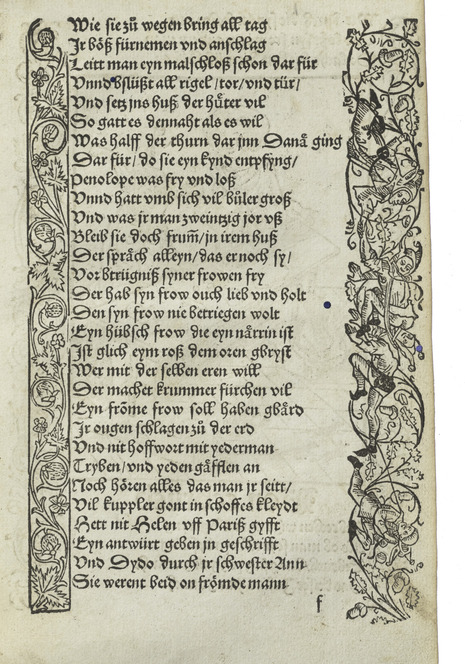 Wie sie zů wegen bring all tag
Jr böß fürnemen vnd anschlag
Leitt man eyn malschloß schon dar für
Vnnd bslüßt all rigel / tor / vnd tür /
Vnd setz jns huß der hůter vil
So gatt es dennaht als es wil
Was halff der thurn dar jnn Danä ging
Dar für / do sie eyn kynd entpfyng /
Penolope was fry vnd loß
Vnnd hatt vmb sich vil bůler groß
Vnd was jr man zweintzig jor vß
Bleib sie doch frum̃ / in irem huß
Der spräch alleyn / das er noch sy /
Vor btriigniß syner frowen fry
Der hab syn frow ouch lieb vnd holt
Den syn frow nie betriegen wolt
Eyn hübsch frow die eyn närrin ist
Jst glich eym roß dem oren gbryst
Wer mit der selben eren will
Der machet krummer fürchen vil
Eyn fröme frow soll haben gbärd
Jr ougen schlagen zů der erd
Vnd nit hoffwort mit yederman
Tryben / vnd yeden gäfflen an
Noch hören alles das man jr seitt /
Vil kuppler gont in schoffes kleydt
Hett nit Helen vff Pariß gyfft
Eyn antwürt geben jn geschrifft
Vnd Dydo durch jr schwester Ann
Sie werent beid on frömde mann
f